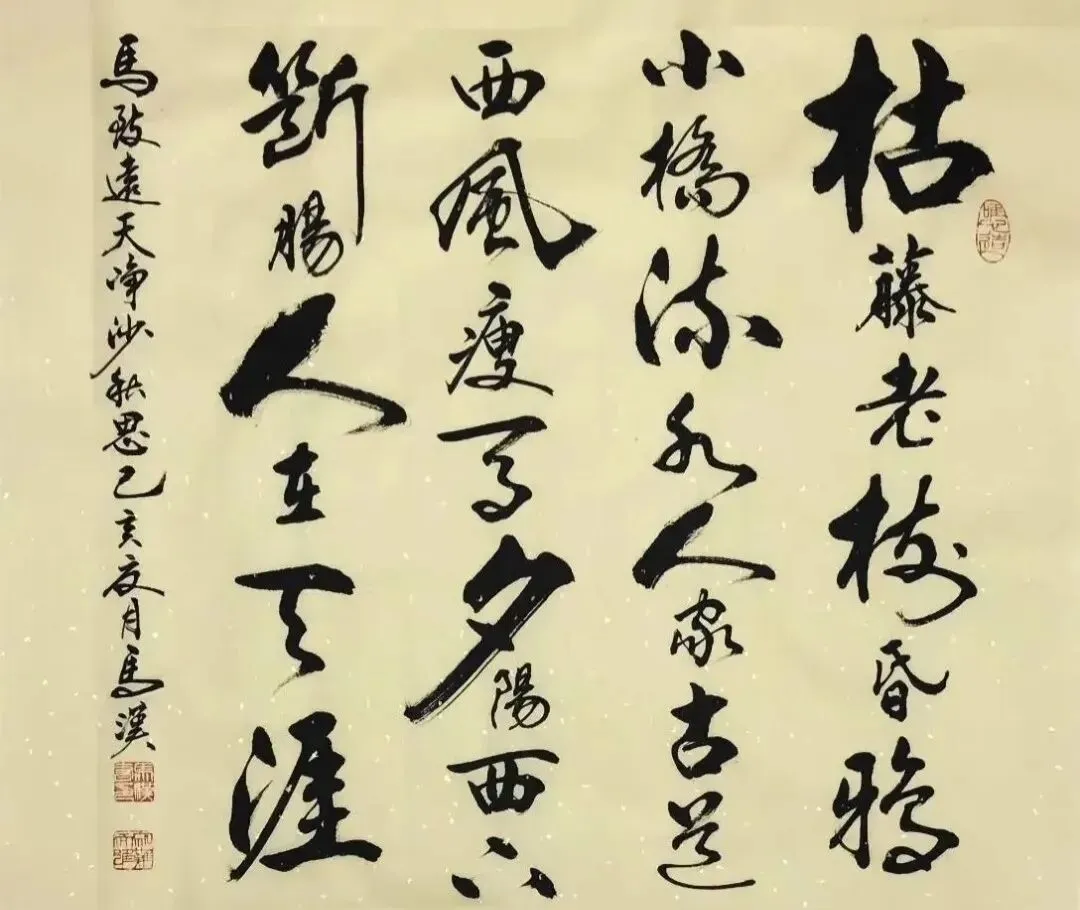 枯藤老樹昏鴉
小橋流水人家古道
西風瘦馬夕陽西下
斷腸人在天涯
馬致遠天淨沙秋思己亥夏月馬漢